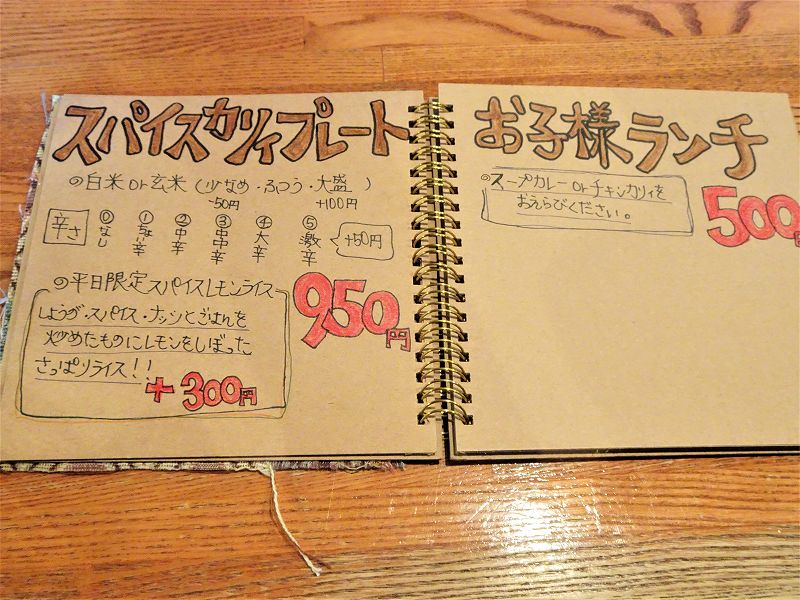 スパイスカリィプレート
◎白米or玄米(少なめ・ふつう・大盛)
-50円 +100円
辛さ ⓪なし ①ちょい辛 ②中辛 ③中中辛 ④大辛 ⑤激辛 +50円
◎平日限定スパイスレモンライス
しょうが・スパイス・ナッツとごはんを
炒めたものにレモンをしぼった
さっぱりライス!!
+300円
950円
お子様ランチ
◎スープカレーorチキンカリィを
おえらびください。
500円